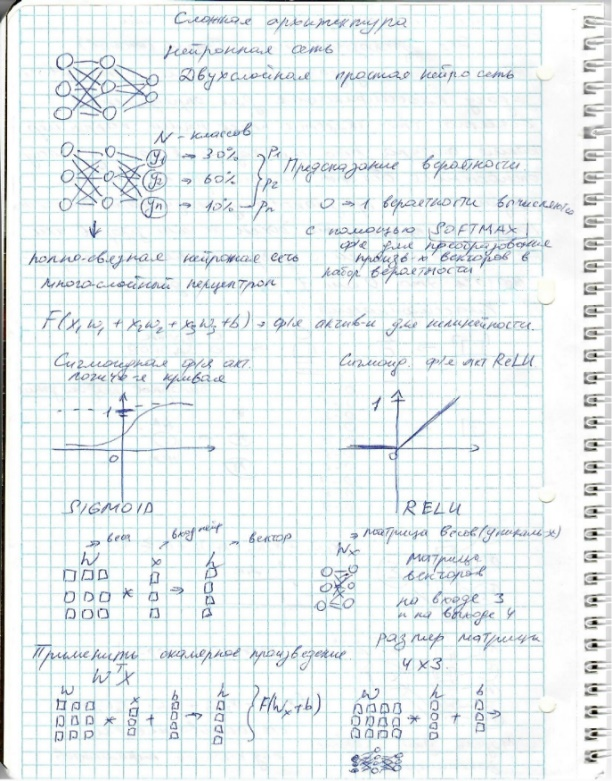 Сложная архитектура
Нейронная сеть
Двухслойная простая нейросеть
N - классов
y1 → 30% p1
y2 → 60% p2
yn → 10% pn
Предсказание вероятности
0 → 1 вероятности вычисляются
с помощью SOFTMAX
ф-я для преобразования
произв-х векторов в
набор вероятности.
полно-связная нейронная сеть
многослойный перцептрон
F(x1w1 + x2w2 + x3w3 + b) → ф-я актив-и для нелинейности.
Сигмоидная ф-я акт.
кривая
1
0
SIGMOID
Сигмоид. ф-я акт ReLU
1
0
RELU
→ веса → вход → вектор
W x h
* =>
→ матрица весов
Wx
матрица
векторов
на входе 3
и на выходе 4
размер матрицы
4 x 3.
Применить скалярное произведение.
W^T X
W x b h
* + → F(Wx + b)
W h b
* + →